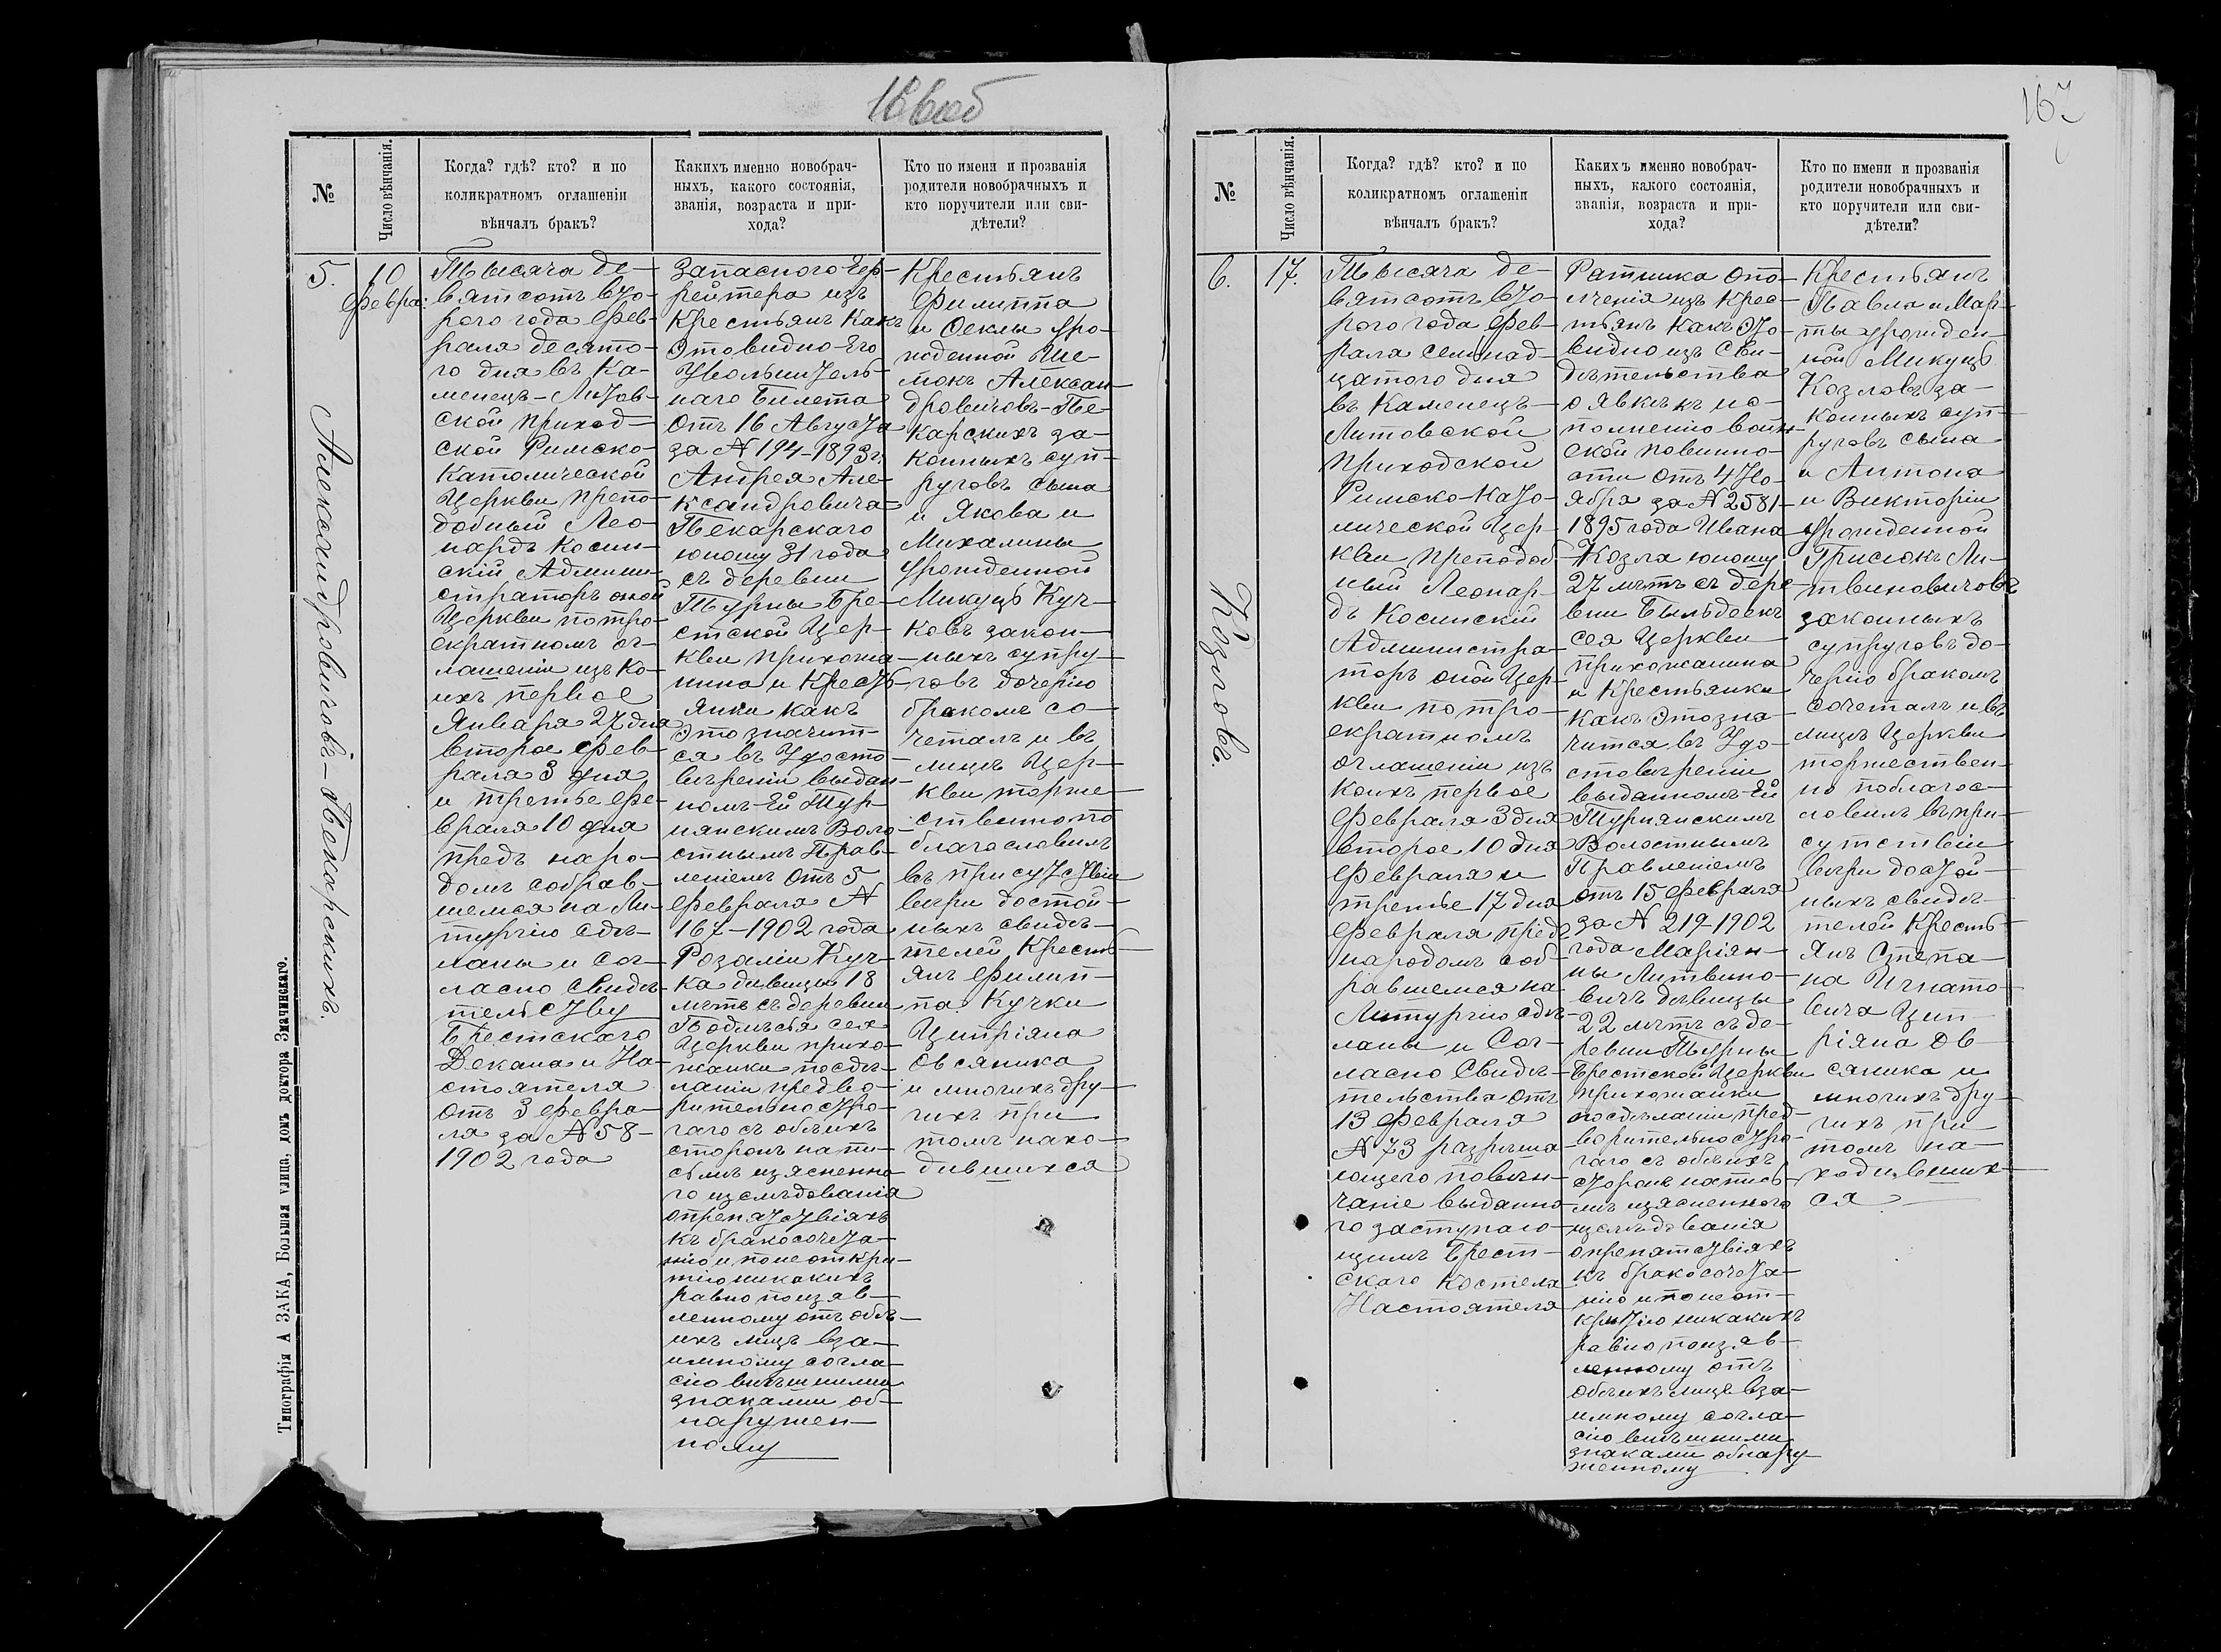 166 об
№
Число вѣнчанія.
Когда? гдѣ? кто? и по
коликратномъ оглашеніи
вѣнчалъ бракъ?
Какихъ именно новобрач-
ныхъ, какого состоянія,
званія, возраста и при-
хода?
Кто по имени и прозванія
родители новобрачныхъ и
кто поручители или сви-
дѣтели?
5.
10
Февра:
Александровичовъ-Пекарскихъ.
Тысяча де-
вятсотъ вто-
рого года Фев-
раля десято-
го дня въ Ка-
менецъ-Литов-
ской приход-
ской Римско-
Католической
Церкви препо-
добный Лео-
нардъ Косин-
скій Админи-
страторъ оной
Церкви потро-
екратномъ ог-
лашеніи изъ ко-
ихъ первое
Января 27 дня
второе Фев-
раля 3 дня
и третье Фе-
враля 10 дня
предъ наро-
домъ собрав-
шемся на Ли-
тургію сдѣ-
ланы и сог-
ласно свидѣ-
тельству
Брестского
Декана и На-
стоятеля
отъ 3 Февра-
ля за N 58-
1902 года
Запасного Ефр-
рейтера изъ
Крестьянъ какъ
Это видно Его
Увольнитель-
наго Билета
Отъ 16 Августа
за N 194-1893 г.
Андрея Але-
ксандровича
Пекарскаго
юношу 31 года
съ деревни
Турны Бре-
стской Цер-
кви прихожа-
нина и Кресть-
янки какъ
это значит-
ся въ Удосто-
вѣреніи выдан-
номъ Ей Тур-
нянскимъ Воло-
стнымъ Прав-
леніемъ отъ 5
Февраля N
167-1902 года
Розаліи Куч-
ка дѣвицы 18
лѣтъ съ деревни
Подлѣсья сея
Церкви прихо-
жанки посдѣ-
ланіи предво-
рительно стро-
гаго съ обѣихъ
сторонъ на пи-
сьмѣ изясненна-
го изслѣдованія
опрепятствіяхъ
къ бракосочета-
нію и понеоткры-
тію никакихъ
равно поизяв-
ленному отъ обѣ-
ихъ лицъ вза-
имному согла-
сію внѣшними
знаками об-
наружен-
ному
Крестьянъ
Филиппа
и Феклы Уро-
жденной Ше-
люкъ Алексан-
дровичовъ-Пе-
карскихъ за-
конныхъ суп-
руговъ сына
и Якова и
Михалины
Урожденной
Микуцъ Куч-
ковъ закон-
ныхъ супру-
говъ дочерію
бракомъ со-
четалъ и въ
лицѣ Цер-
кви торже-
ственно по
благословилъ
въ присутствіи
вѣри достой-
ныхъ свидѣ-
телей Кресть-
янъ Филип-
па Кучки
Ципріяна
Овсяника
и многихъ дру-
гихъ при
томъ нахо-
дившихся
Типографія А ЗАКА, Большая улица, домъ доктора Значинскаго.
167
№
Число вѣнчанія.
Когда? гдѣ? кто? и по
коликратномъ оглашеніи
вѣнчалъ бракъ?
Какихъ именно новобрач-
ныхъ, какого состоянія,
званія, возраста и при-
хода?
Кто по имени и прозванія
родители новобрачныхъ и
кто поручители или сви-
дѣтели?
6.
17.
Козловъ.
Тысяча де-
вятсотъ вто-
рого года Фев-
раля семнад-
цатого дня
въ Каменецъ-
Литовской
приходской
Римско-Като-
лической Цер-
кви преподоб-
ный Леонар-
дъ Косинскій
Администра-
торъ оной Цер-
кви потро-
екратномъ
оглашеніи изъ
коихъ первое
Февраля 3 дня
второе 10 дня
Февраля и
третье 17 дня
Февраля предъ
народомъ соб-
равшемся на
Литургію сдѣ-
ланы и Сог-
ласно Свидѣ-
тельства отъ
13 Февраля
N 73 разрѣша-
ющего повѣн-
чаніе выданно-
го заступаю-
щимъ Брест-
скаго костела
Настоятеля
Ратника Опо-
лченія изъ Крес-
тьянъ какъ Это
видно изъ Сви-
дѣтельства
о явкѣ къ ис-
полненію воин-
ской повинно-
сти отъ 4 Но-
ября за N 2581-
1895 года Ивана
Козла юношу
27 лѣтъ съ дере-
вни Бильдеекъ
сея Церкви
прихожанина
и Крестьянки
какъ Это зна-
чится въ Удо-
стовѣреніи
выданномъ Ей
Турнянскимъ
Волостнымъ
Правленіемъ
отъ 15 Февраля
за N 219-1902
года Маріян-
ны Литвино-
вичъ дѣвицы
22 лѣтъ съ де-
ревни Турны
Брестской Церкви
прихожанки
посдѣланіи пред-
ворительно стро-
гаго съ обѣихъ
сторонъ на пись-
мѣ изясненного
изслѣдованія
опрепятствіяхъ
къ бракосочета-
нію и понеот-
крытію никакихъ
равно поизяв-
ленному отъ
обѣихъ лицъ вза-
имному согла-
сію внѣшними
знаками обнару-
женному
Крестьянъ
Павла и Мар-
ты урожден-
ной Микуцъ
Козловъ за-
конныхъ суп-
руговъ сына
и Антона
и Викторіи
Урожденной
Грисюкъ Ли-
твиновичовъ
законныхъ
супруговъ до-
черію бракомъ
сочеталъ и въ
лицѣ Церкви
торжествен-
но поблагос-
ловилъ въ при-
сутствіи
вѣри достой-
ныхъ свидѣ-
телей Кресть-
янъ Степа-
на Игнато-
вича Цип-
ріяна Ов-
сяника и
многихъ дру-
гихъ при
томъ на-
ходивших-
ся